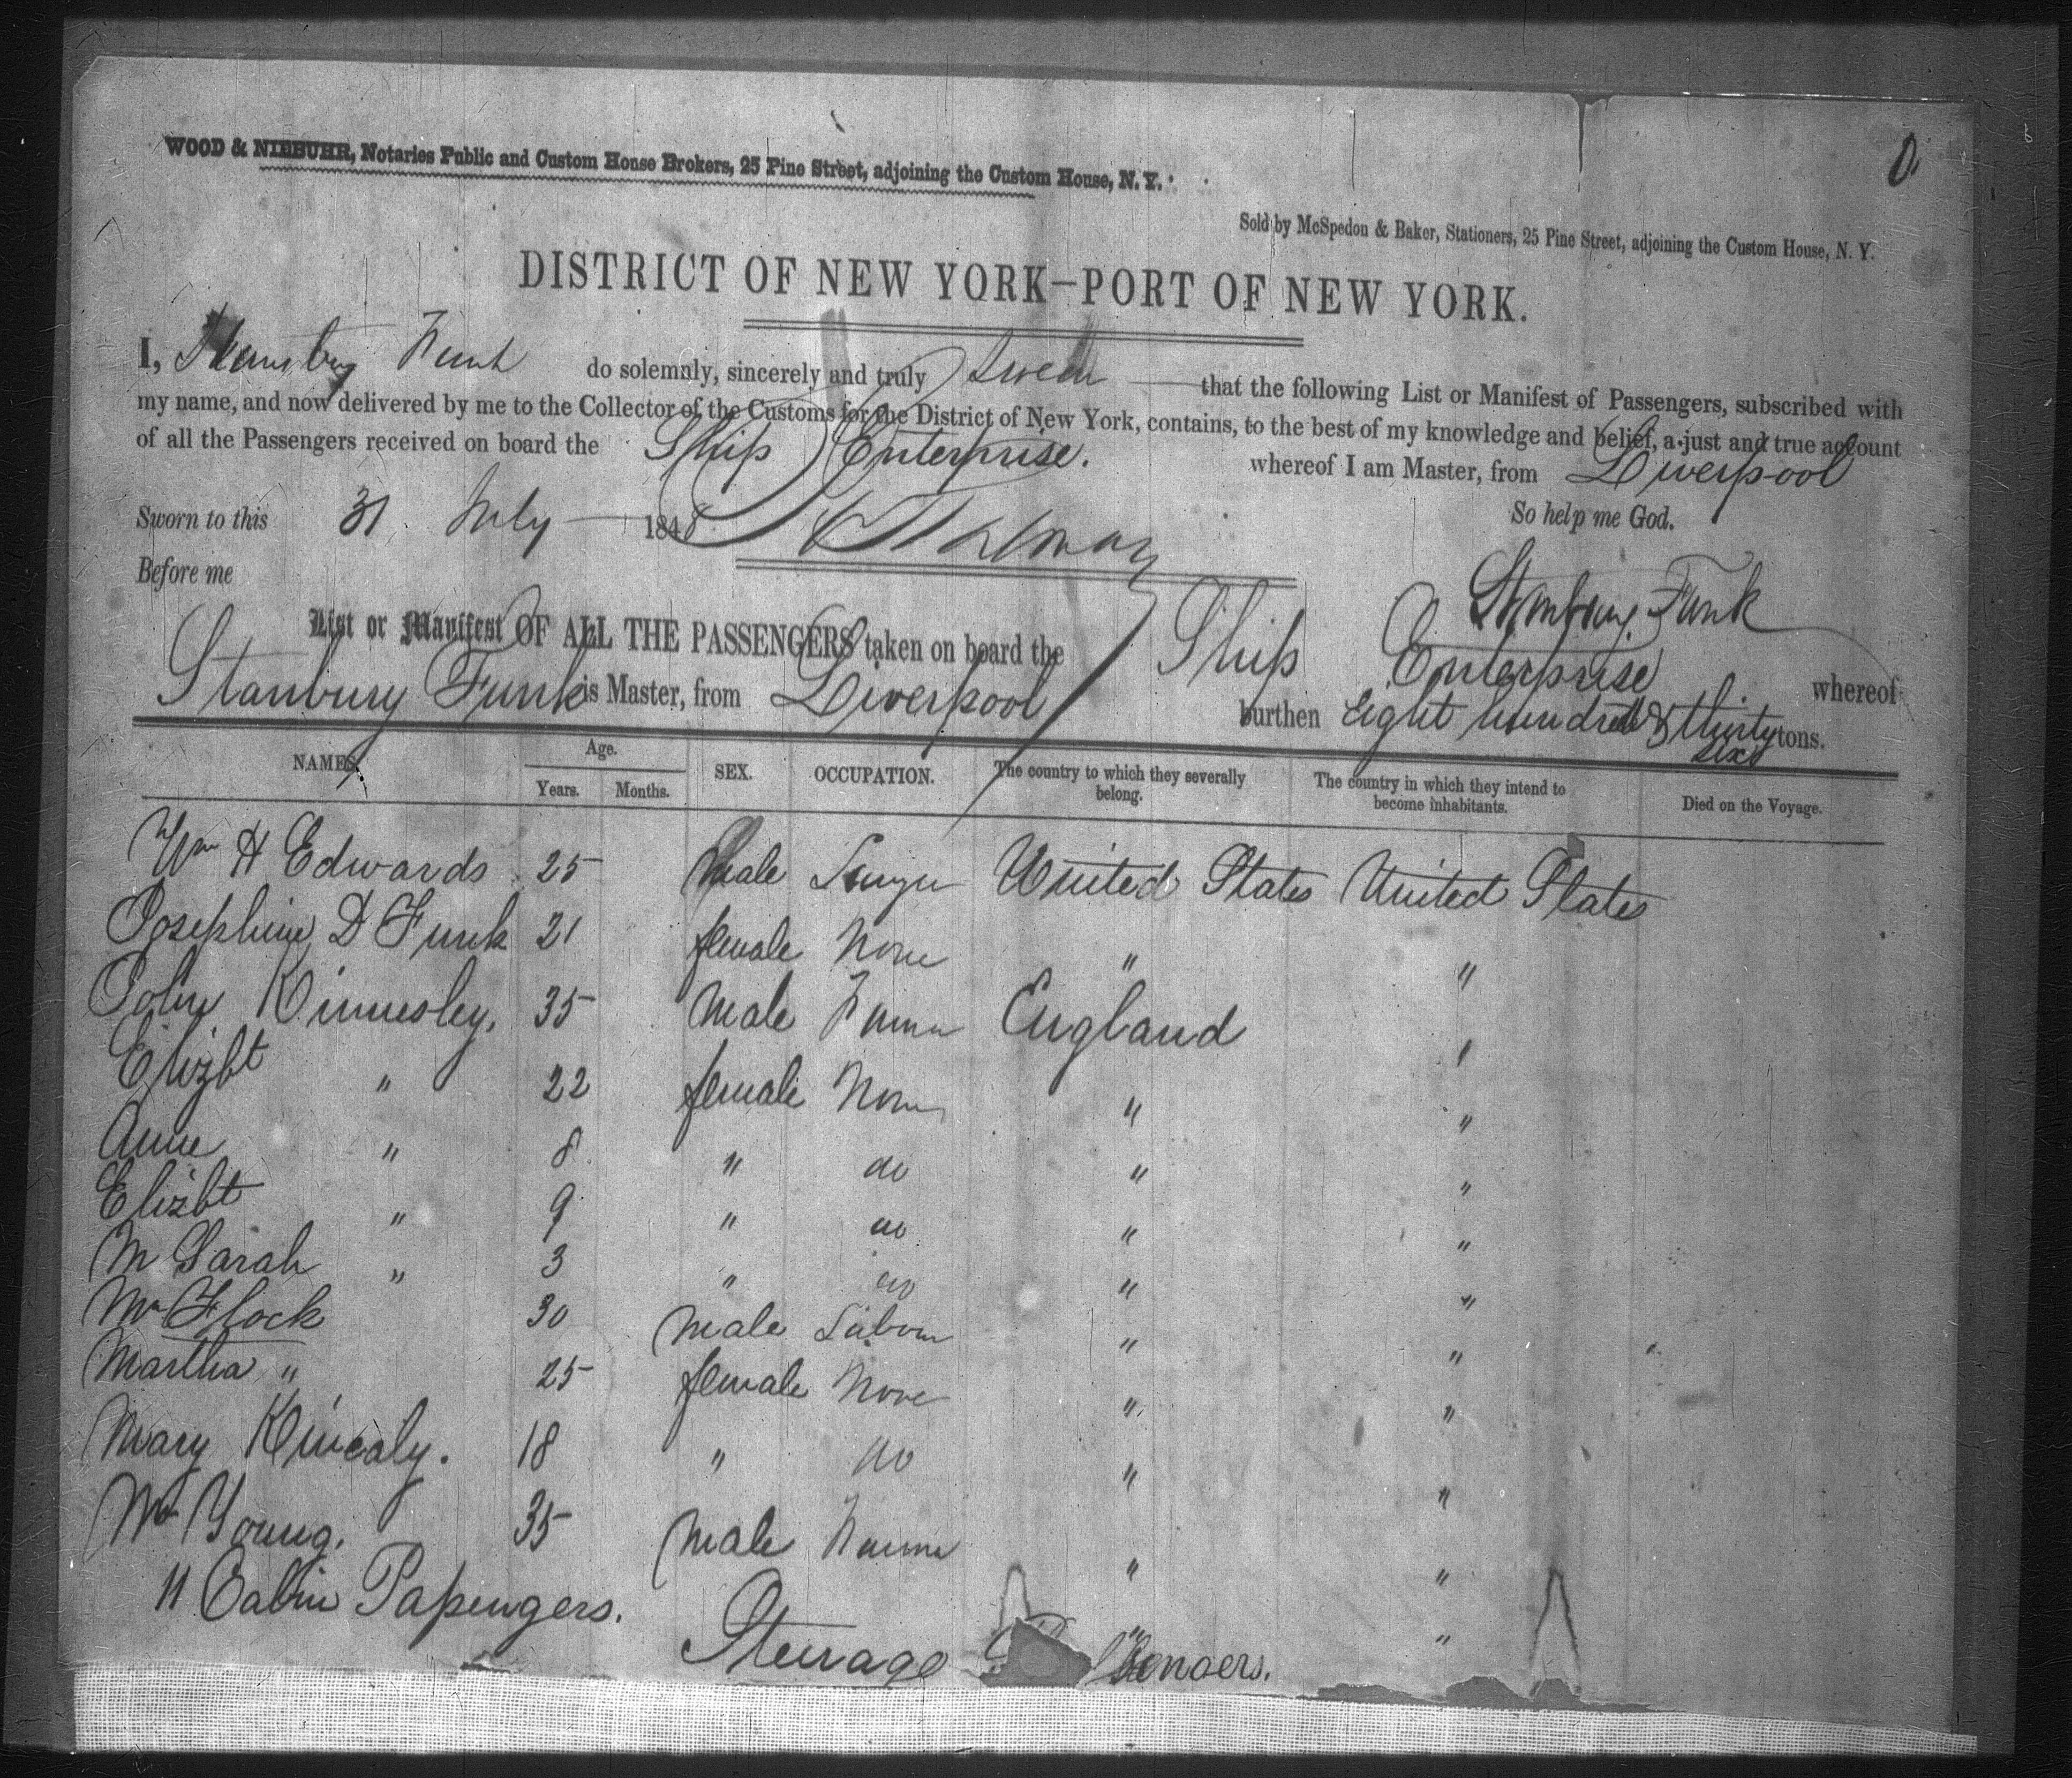 WOOD & NIEBUHR, Notaries Public and Custom House Brokers, 25 Pine Street, adjoining the Custom House, N. Y.
Sold by McSpedon & Baker, Stationers, 25 Pine Street, adjoining the Custom House, N. Y.
DISTRICT OF NEW YORK—PORT OF NEW YORK.
I, Stansbury Funk do solemnly, sincerely and truly Swear that the following List or Manifest of Passengers, subscribed with
my name, and now delivered by me to the Collector of the Customs for the District of New York, contains, to the best of my knowledge and belief, a just and true account
of all the Passengers received on board the Ship Enterprise. whereof I am Master, from Liverpool
Sworn to this 31 July 1848 So help me God.
Before me Stanbury Funk
List or Manifest OF ALL THE PASSENGERS taken on board the Ship Enterprise whereof
Stanbury Funk is Master, from Liverpool burthen Eight hundred & thirty six tons.
NAMES. Age. Years. Months. SEX. OCCUPATION. The country to which they severally belong. The country in which they intend to become inhabitants. Died on the Voyage.
Wm H Edwards 25 Male United States United States
Josephine D Funk 21 female None " "
John Kinnesley. 35 Male Farmer England "
Elizbt " 22 female None " "
Anne " 8 " do " "
Elizbt " 9 " do " "
M Sarah " 3 " do " "
Mr Flock 30 Male Labour " "
Martha " 25 female None " "
Mary Kinealy. 18 " do " "
Mr Young. 35 Male Farmer " "
11 Cabin Passengers. " "
Steerage